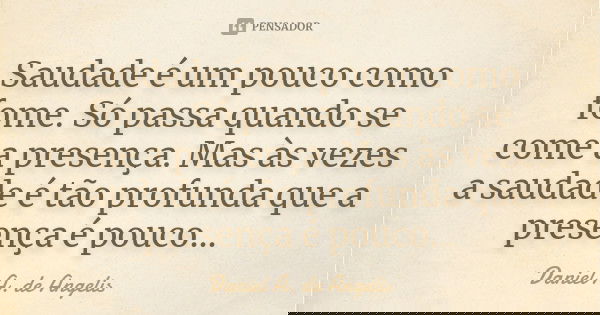 PENSADOR
Saudade é um pouco como
fome. Só passa quando se
come a presença. Mas às vezes
a saudade é tão profunda que a
presença é pouco...
Daniel A. de Angelis